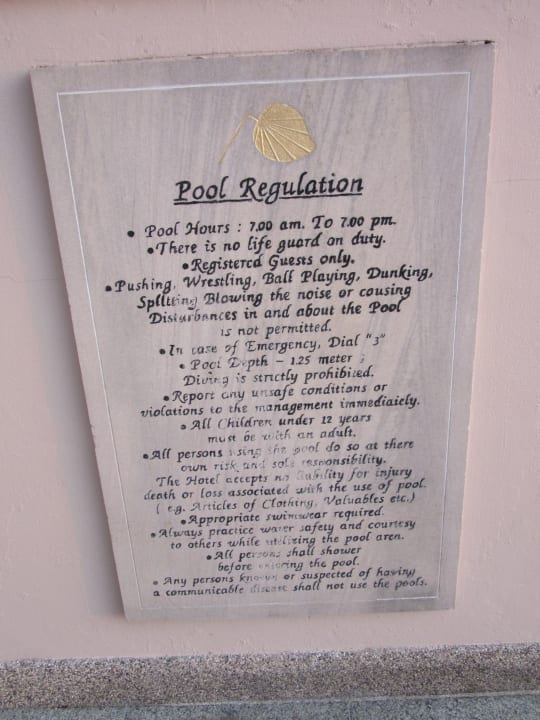 Pool Regulation
• Pool Hours : 7.00 am. To 7.00 pm.
• There is no life guard on duty.
• Registered Guests only.
• Pushing, Wrestling, Ball Playing, Dunking,
Splitting Blowing the noise or cousing
Disturbances in and about the Pool
is not permitted.
• In case of Emergency, Dial "3"
• Pool Depth - 1.25 meter ;
Diving is strictly prohibited.
• Report any unsafe conditions or
violations to the management immediately.
• All Children under 12 years
must be with an adult.
• All persons using the pool do so at there
own risk and sole responsibility.
The Hotel accepts no liability for injury
death or loss associated with the use of pool.
( e.g. Articles of Clothing, Valuables etc.)
• Appropriate swimwear required.
• Always practice water safety and courtesy
to others while utilizing the pool area.
• All persons shall shower
before entering the pool.
• Any persons known or suspected of having
a communicable disease shall not use the pools.